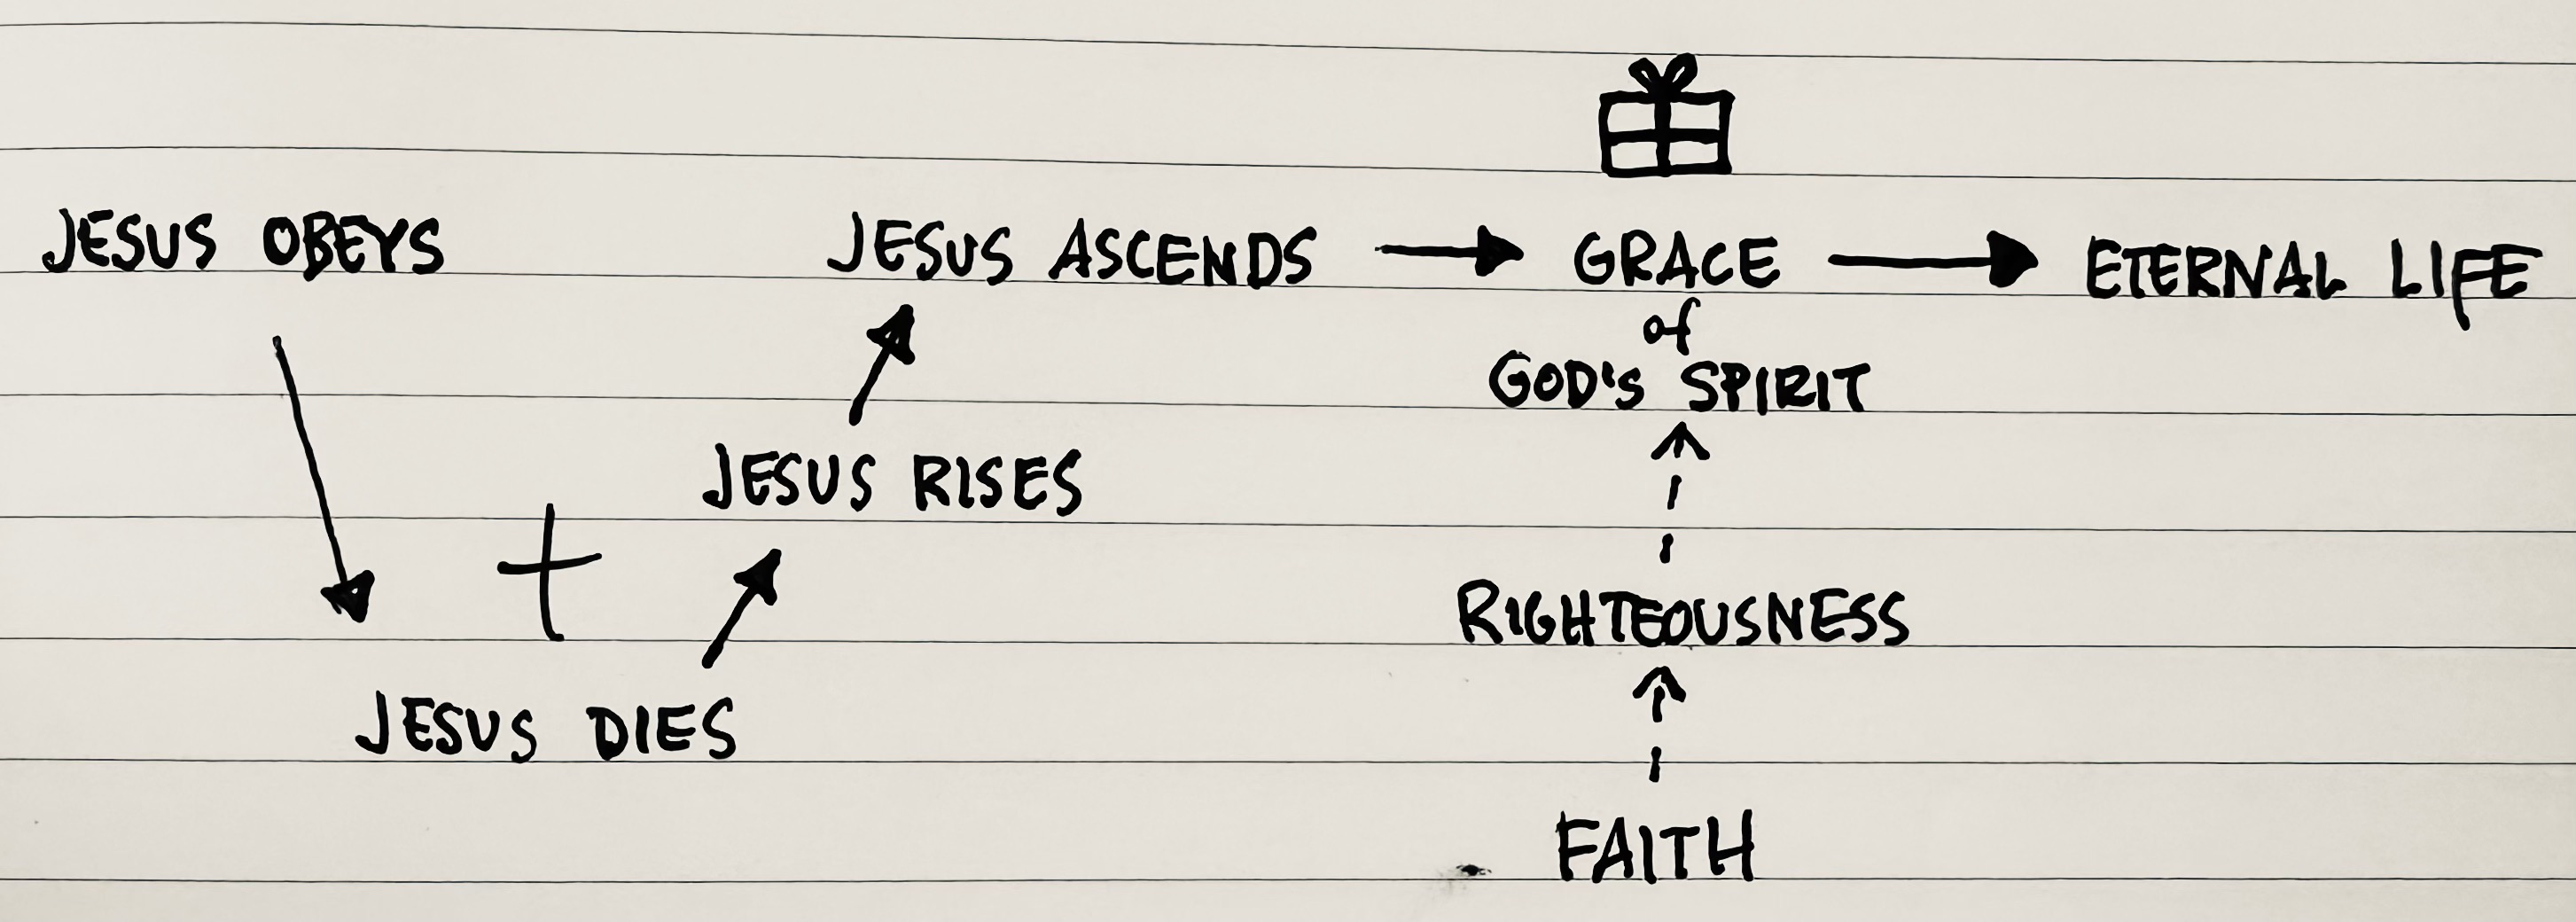 JESUS OBEYS
JESUS DIES
JESUS RISES
JESUS ASCENDS
GRACE
of
GOD'S SPIRIT
ETERNAL LIFE
RIGHTEOUSNESS
FAITH